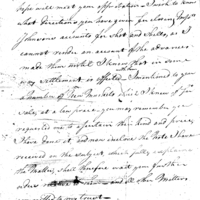 will meet your approbation I wish to know
what directions you have given for closing
Johnsons accounts for Shot and Shells, as I
cannot render an account of the advances
made them until I know that in some
way settlement is effected I mentioned to you
a number of New Muskets which I knew of for
sale, at a low price, you may remember you
requested me to ascertain the kind and price,
I have done it, and now enclose the Note I have
received on the subject, which fully explains
the Matter, shall therefore wait your further
orders and all other Matters